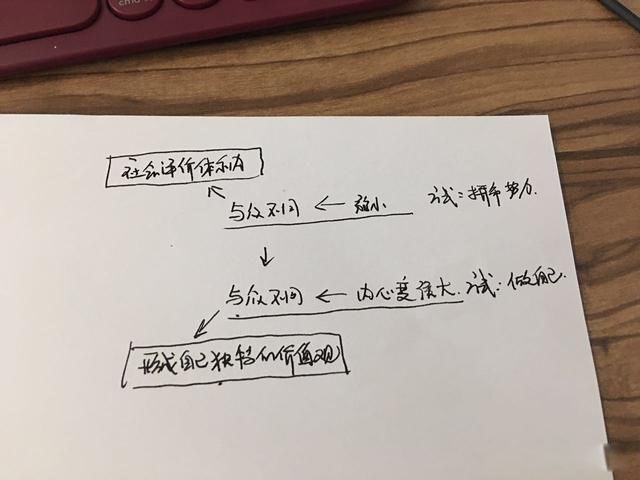 社会评价体系内
与众不同 ← 弱小 试:拼命努力.
↓
与众不同 ← 内心变强大. 试:做自己.
形成自己独特的价值观